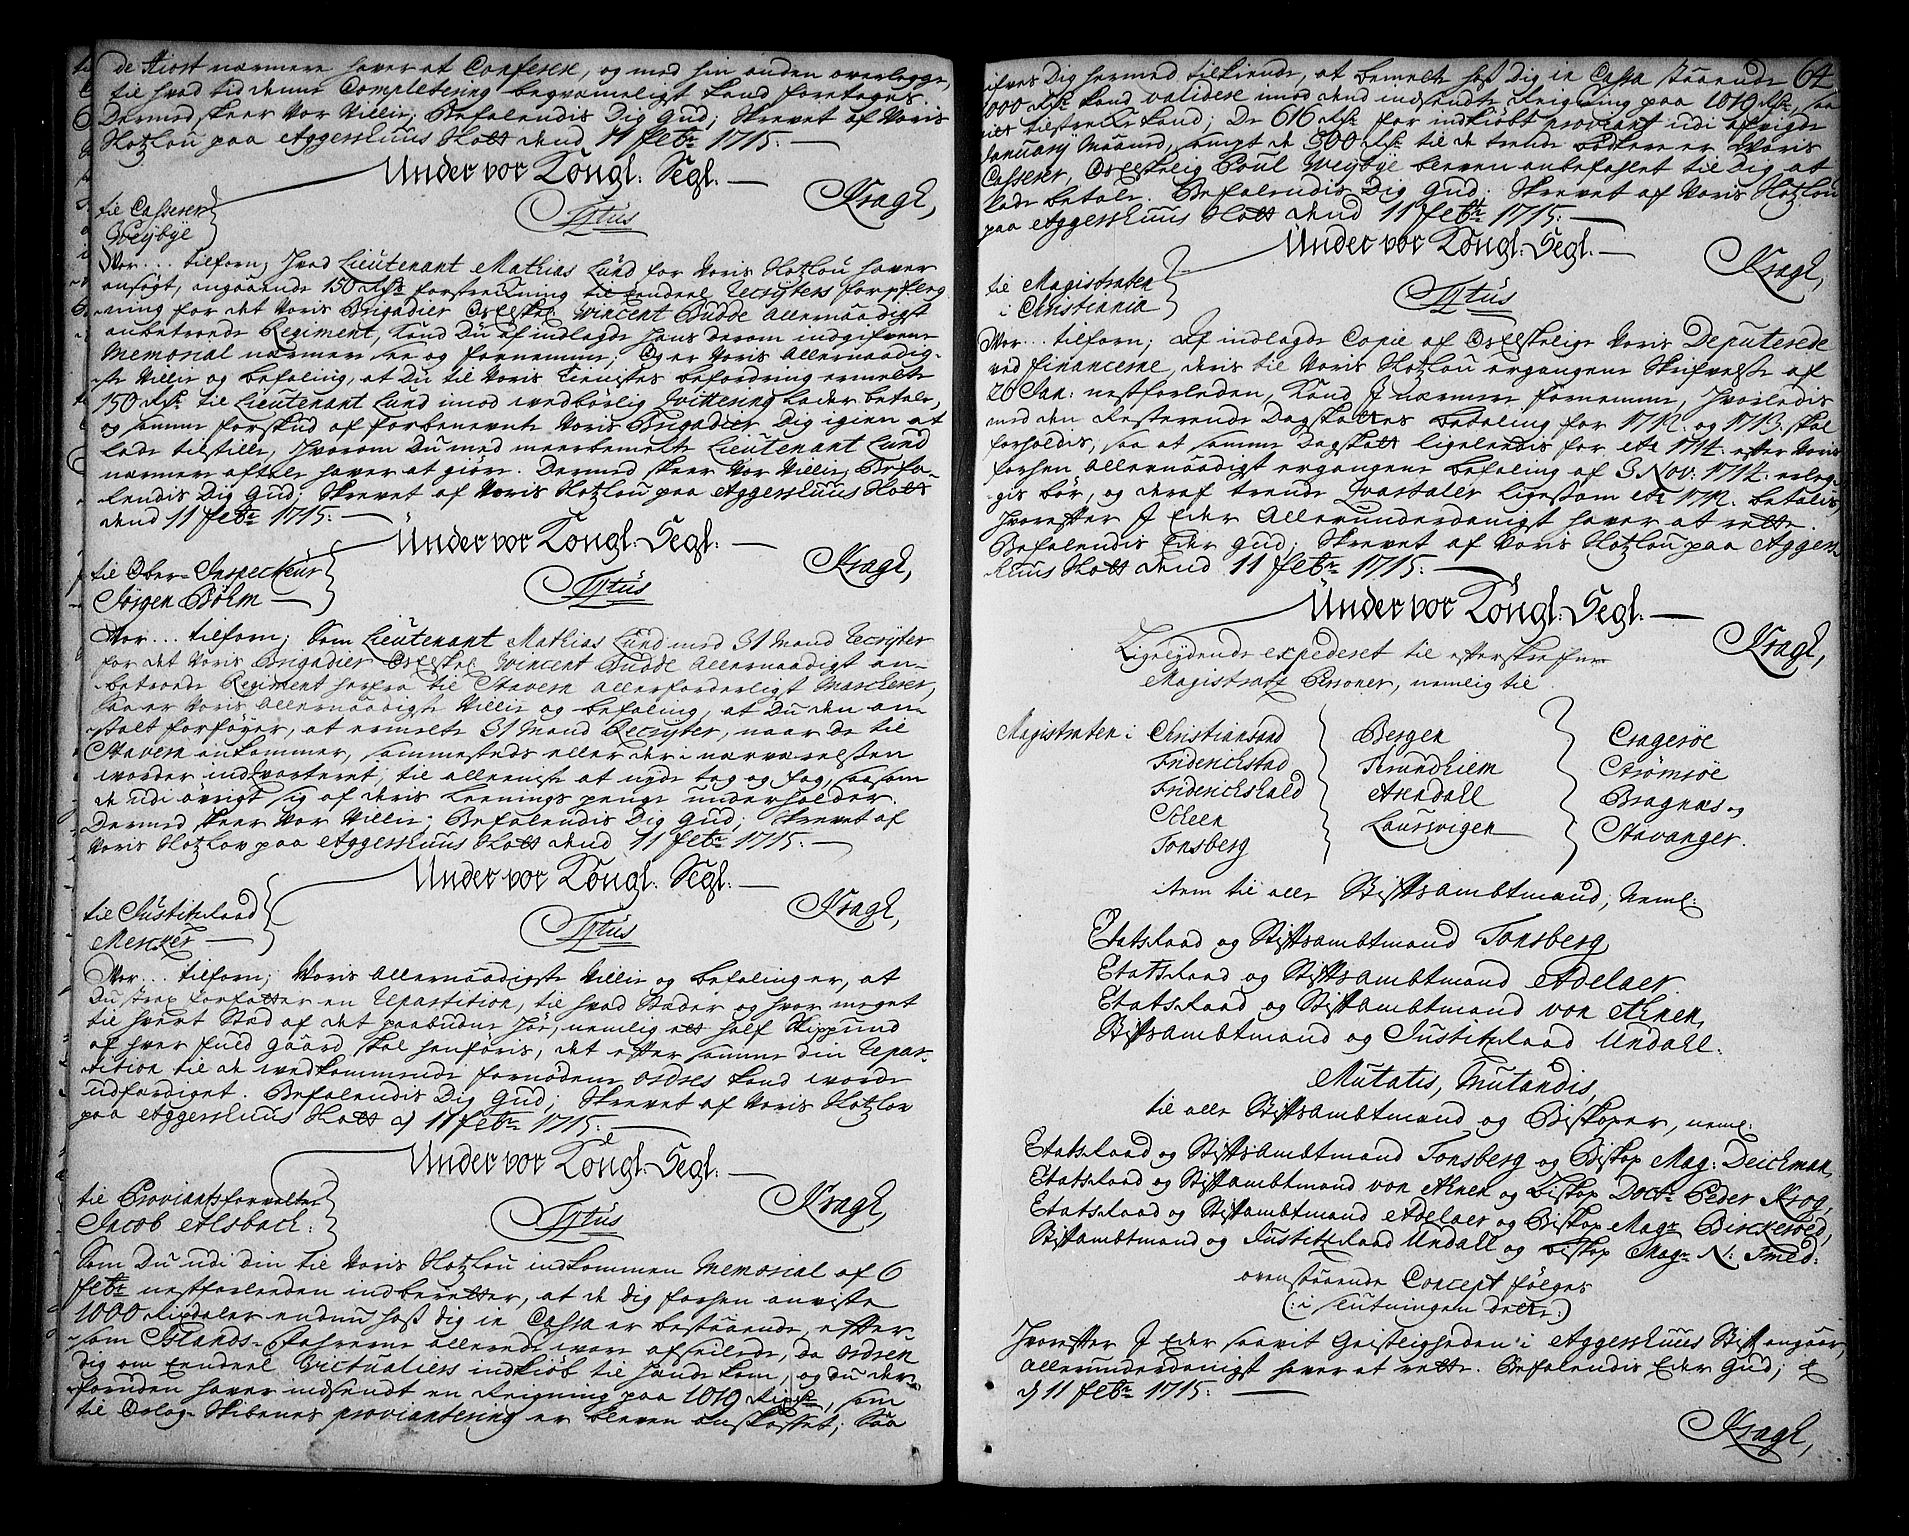 de Kiost nærmere haver at Conferere, og med hin anden overlegge,
til hvad tid denne Completering beqvemmeligst kand foretages.
Dermed skeer Vor Villie, Befalendis Dig Gud; Skrevet af Voris
Slotzlov paa Aggershuus Slott dend 11 febr: 1715.
Ünder vor Kongl: Segl.
Kragh,
til Casserer
Weybye
Tÿtus
Vor... tilforn; Hvad Lieutenant Mathias Lund for Voris Slotzlov haver
ansøgt, angaaende 150 Rdr forstrekning til Endeel Recryters forpfleg
ning for det Voris Brigadier Os Elskel Vincent Budde Allernaadigst
anbetroede Regiment, kand Du af indlagde hans derom indgifvene
Memorial nærmere see og fornemme; Og er Voris Allernaadig-
ste Villie og befaling, at Du til Voris Tienistes befordring ermelte
150 Rdr til Lieutenant Lund imod vedbørlig Qvittering lader betale,
og samme forskud af forbenevnte Voris Brigadier Dig igien at
lade tilstille, hvorom Du med meerbemelte Lieutenant Lund
nærmere aftale haver at giøre. Dermed skeer Vor Villie, Befa-
lendis Dig Gud; Skrevet af Voris Slotzlov paa Aggershuus Slott
dend 11 febr: 1715.
Ünder vor Kongl: Segl.
Kragh,
til Ober-Inspecteur
Jørgen Bøhm
Tÿtus
Vor... tilforn; Som Lieutenant Mathias Lund med 31 Mand Recryter
for det Voris Brigadier Os Elskel Vincent Budde Allernaadigst an-
betroede Regiment herfra til Stavern allerforderligst Marcherer,
saa er Voris Allernaadigste Villie og befaling, at Du den an-
stalt forføyer, at ermelte 31 Mand Recryter, naar De til
Stavern ankommer, sammesteds eller der i nærværelsen
vorder indqvarteret, til alleeneste at nyde tag og fag, saasom
de udi øvrigt sig af deris Leenings penge underholder.
Dermed skeer Vor Villie; Befalendis Dig Gud; Skrevet af
Voris Slotzlov paa Aggershuus Slott dend 11 febr: 1715.
Ünder vor Kongl: Segl.
Kragh,
til Justitzraad
Mercker
Tÿtus
Vor... tilforn; Voris Allernaadigste Villie og befaling er, at
Du strax forfatter en Repartition, til hvad Stæder og hvor meget
til hvert Stæd af det paabudne høe, nemlig ett half Skippund
af hver fuld gaard skal henføris, det efter samme din Repar-
tition til de vedkommende fornødene ordres kand vorde
udfærdiget. Befalendis Dig Gud; Skrevet af Voris Slotzlov
paa Aggershuus Slott d 11 febr: 1715.
Ünder vor Kongl: Segl.
Kragh,
til Proviantsforvalter
Jacob Alsback:
Tÿtus
Som Du udi din til Voris Slotzlov indkommen Memorial af 6
febr: nestforleeden indberetter, at de Dig forhen anviste
1000 Rixdaler endnu hoß dig in Cassa er bestaaende, efter-
som Islands-farerne allerede vare afseilede, da ordren
dig om Endeel Victualiers indkiøb til hænde kom, og Du der-
foruden haver indsendt en Reigning paa 1019 Rixdr, som
til Orlog-Skibenes proviantering er bleven anskaffet; Saa
64
gifves Dig hermed tilkiende, at bemelte hos Dig in Cassa staaende
1000 Rdr kand validere imod dend indsendte Reigning paa 1019 Rdr, saa
vit tilstrekke kand; De 616 Rdr for indkiøbt proviant udi afvigte
January Maaned, sampt de 500 Rdr til de trende bødkere er Voris
Casserer, Os Elskelig Poul Weybye bleven anbefalet til Dig at
lade betale. Befalendis Dig Gud. Skrevet af Voris Slotzlov
paa Aggershuus Slott dend 11 febr: 1715.
Ünder vor Kongl: Segl.
Kragh,
til Magistraten
i Christiania
Tÿtus
Vor... tilforn; Af indlagde Copie af Os Elskelige Voris Deputerede
ved Financerne, deris til Voris Slotzlov ergangene Skrifvelse af
26 Jan: nestforleden, kand I nærmere fornemme, hvorledis
med den Resterende Dagskattes betaling for 1712. og 1713. skal
forholdis, saa at samme Dagskatt ligeledis for Ao 1714. efter Voris
forhen allernaadigst ergangene befaling af 3 Nov: 1714. erleg-
gis bør, og deraf trende Qvartaler ligesom Ao 1712. betalis,
hvorefter I Eder Allerunderdanigst haver at rette.
Befalendis Eder Gud; Skrevet af Voris Slotzlov paa Aggers-
huus Slott dend 11 febr: 1715.
Ünder vor Kongl: Segl.
Kragh,
Ligelydende expederet til efterskrefne
Magistrats Personer, nemlig til
Magistraten i Christiansand Bergen Cragerøe
Friderichstad Trundhiem Strømsøe
Friderichshald Arendall Bragnæs og
Scheen Laursvigen Stavanger.
Tonsberg
item til alle Stiftsambtmænd, Neml:
Etatsraad og Stiftsambtmand Tonsberg,
Etatsraad og Stiftsambtmand Adelaer.
Etatsraad og Stiftsambtmand von Ahnen,
Stiftsambtmand og Justitzraad Undall.
Mutatis, Mutandis,
til alle Stiftsambtmænd og Biskoper, neml:
Etatsraad og Stiftsambtmand Tonsberg og Biskop Mag: Deichman,
Etatsraad og Stiftsambtmand von Ahnen og Biskop Doctr Peder Krog,
Etatsraad og Stiftsambtmand Adelaer og Biskop Magr Birckerød,
Stiftsambtmand og Justitzraad Undall og Biskop Magr N: Smed:
ovenstaaende Concept følges
(: i slutningen dette :)
Hvorefter I Eder saavit Geistligheden i Aggershuus Stift angaar,
allerunderdanigst haver at rette. Befalendis Eder Gud; &
d 11 febr: 1715.
Kragh,